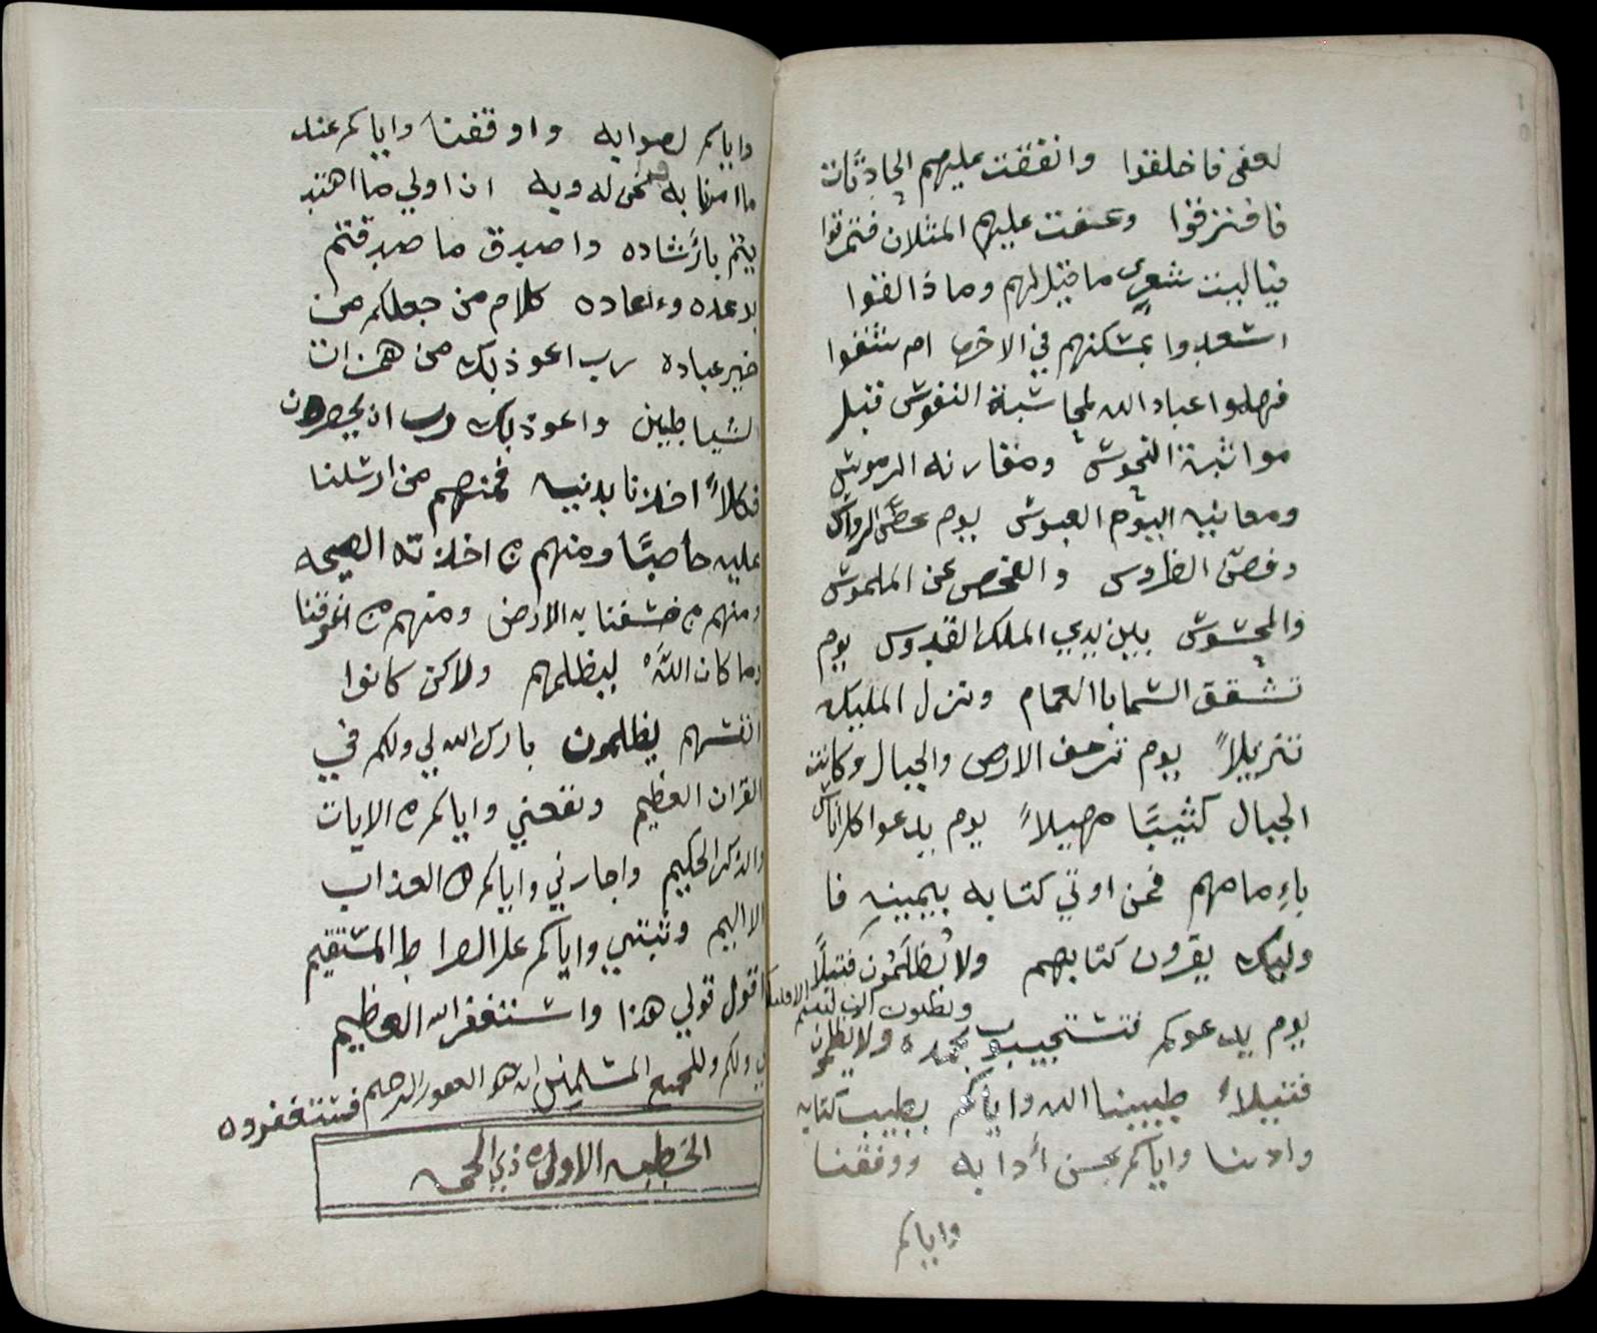 لعفى فاخلقوا وانفقت عليهم الحادثات
فافتزقوا وعسفت عليهم المثلان فتمزقوا
فياليت شعري ما قيل لهم وماذا لقوا
اسعدوا بمسكنهم في الاخرة ام شقوا
فهلموا عباد الله لمحاسبة النفوس قبل
مواثبة النحوس ومقارنه الرموس
ومعاينه اليوم العبوس يوم حطّ الرواس
وفصّ الطروس والفحص عن الملموس
والمحسوس بين يدي الملك القدوس يوم
تشقق السما با الغمام وتنزل المليكه
تنزيلاً يوم ترجف الارض والجبال وكانت
الجبال كثيبًا مهيلاً يوم يدعوا كل اناس
باءِمامهم فمن اوتي كتابه بيمينه فا
وليك يقرون كتابهم ولا يُظلَمُون فتيلاً
يوم يدعوكم فتستجيبون بحمده وتظنون ان لبثتم الا قليلا ولا يظلمون
فتيلاً طيبنا الله واياكم بطيب كتابه
وادبنا واياكم بحسن أدابه ووفقنا
واياكم
واياكم لصوابه واوقفنا واياكم عند
ما امرنا به فنحن له وبه ان اولي ما اهتد
يتم بارشاده واصدق ما صدقتم
بوعده وءاعاده كلام من جعلكم من
خير عباده رب اعوذ بك من همزات
الشياطين واعوذ بك رب ان يحضرون
فكلاً اخذنا بذنبه فمنهم من ارسلنا
عليه حاصبًا ومنهم من اخذته الصيحه
ومنهم من خسفنا به الارض ومنهم من اغرقنا
وما كان اللهُ ليظلمهم ولاكن كانوا
انفسهم يظلمون بارك الله لي ولكم في
القران العظيم ونفعني واياكم من الايات
والذكر الحكيم واجارني واياكم من العذاب
الا اليم وثبتني واياكم على الصراط المستقيم
اقول قولي هذا واستغفر الله العظيم
لي ولكم ولجميع المسلمين انه هو الغفور الرحيم فستغفروه
الخطبه الاولى من ذي الحجه